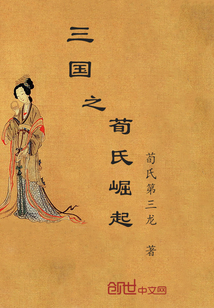 三国之荀氏崛起
荀氏第三龙 著
创世中文网